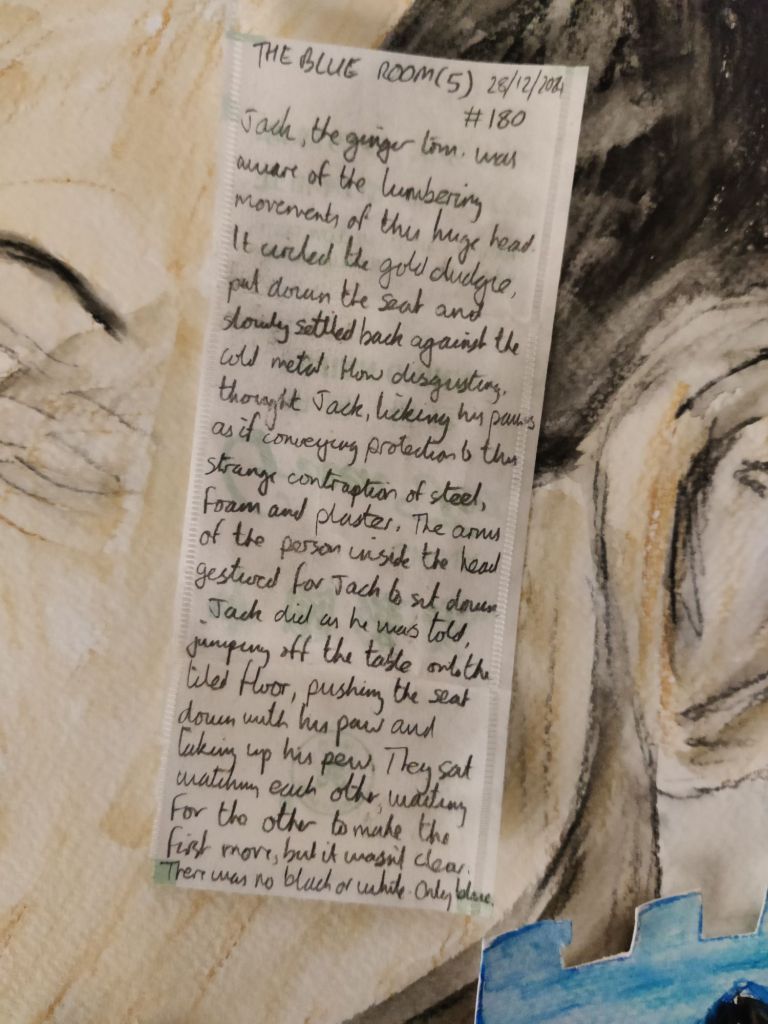 THE BLUE ROOM (5) 28/12/2024
#180
Jack, the ginger tom. was
aware of the lumbering
movements of this huge head.
It circled the gold
put down the seat and
slowly settled back against the
cold metal. How disgusting,
thought Jack, licking his paws
as if conveying protection to this
strange contraption of steel,
foam and plaster. The arms
of the person inside the head
gestured for Jack to sit down.
Jack did as he was told,
jumping off the table onto the
tiled floor, pushing the seat
down with his paw and
taking up his pew. They sat
watching each other, waiting
for the other to make the
first move, but it wasn't clear.
There was no black or white. Only blue.